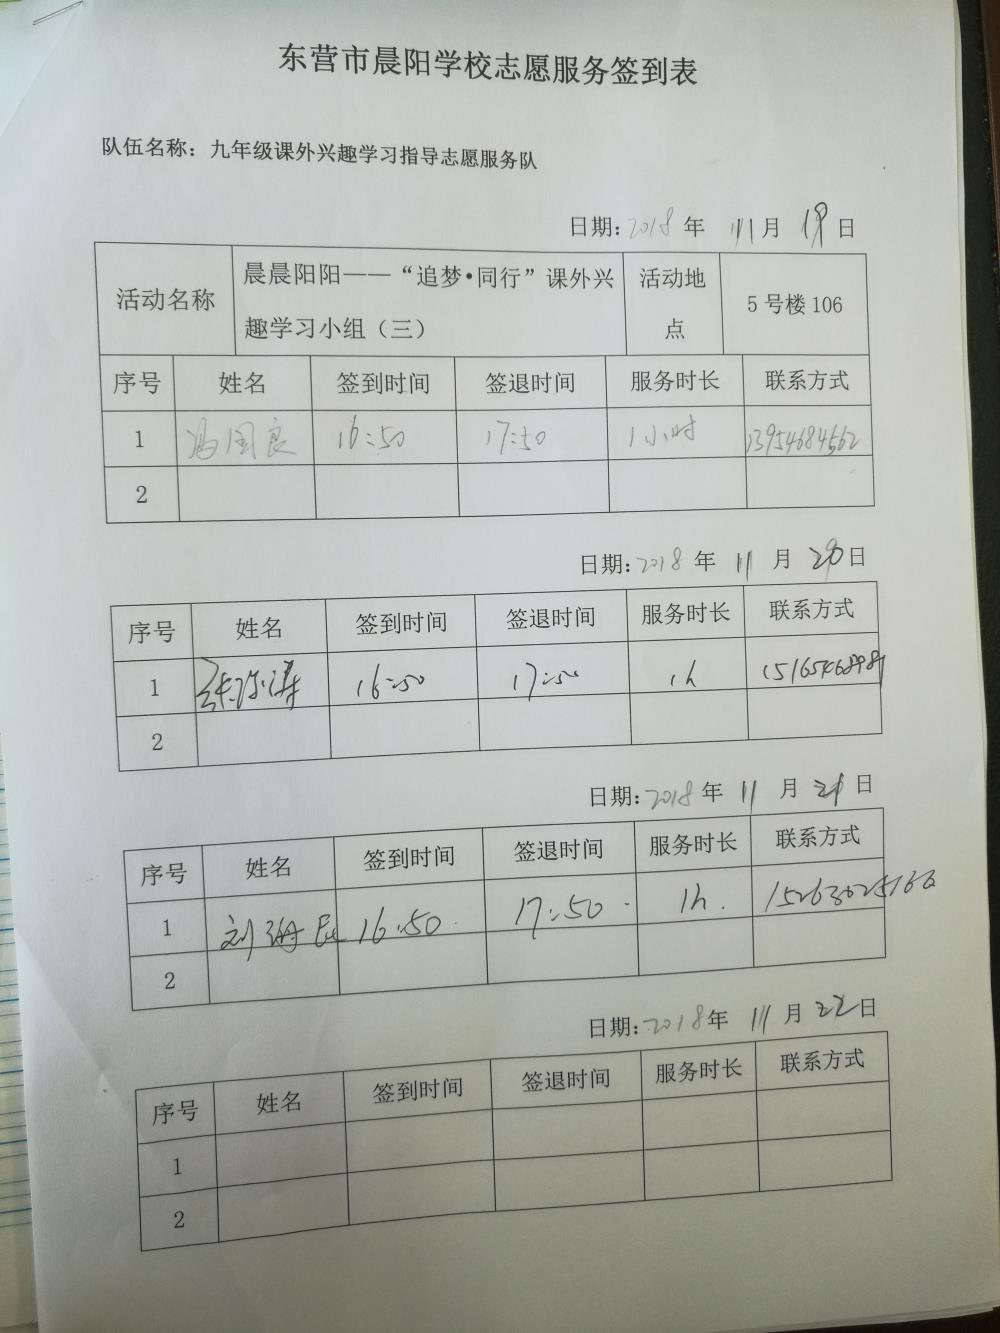 东营市晨阳学校志愿服务签到表
队伍名称：九年级课外兴趣学习指导志愿服务队
日期：2018 年 11 月 19 日
活动名称 晨晨阳阳——“追梦•同行”课外兴趣学习小组（三） 活动地点 5 号楼 106
序号 姓名 签到时间 签退时间 服务时长 联系方式
1 冯国良 16:50 17:50 1小时 13954684562
2
日期：2018 年 11 月 20 日
序号 姓名 签到时间 签退时间 服务时长 联系方式
1 16:50 17:50 1h
2
日期：2018 年 11 月 21 日
序号 姓名 签到时间 签退时间 服务时长 联系方式
1 刘海民 16:50 17:50 1h.
2
日期：2018 年 11 月 22 日
序号 姓名 签到时间 签退时间 服务时长 联系方式
1
2